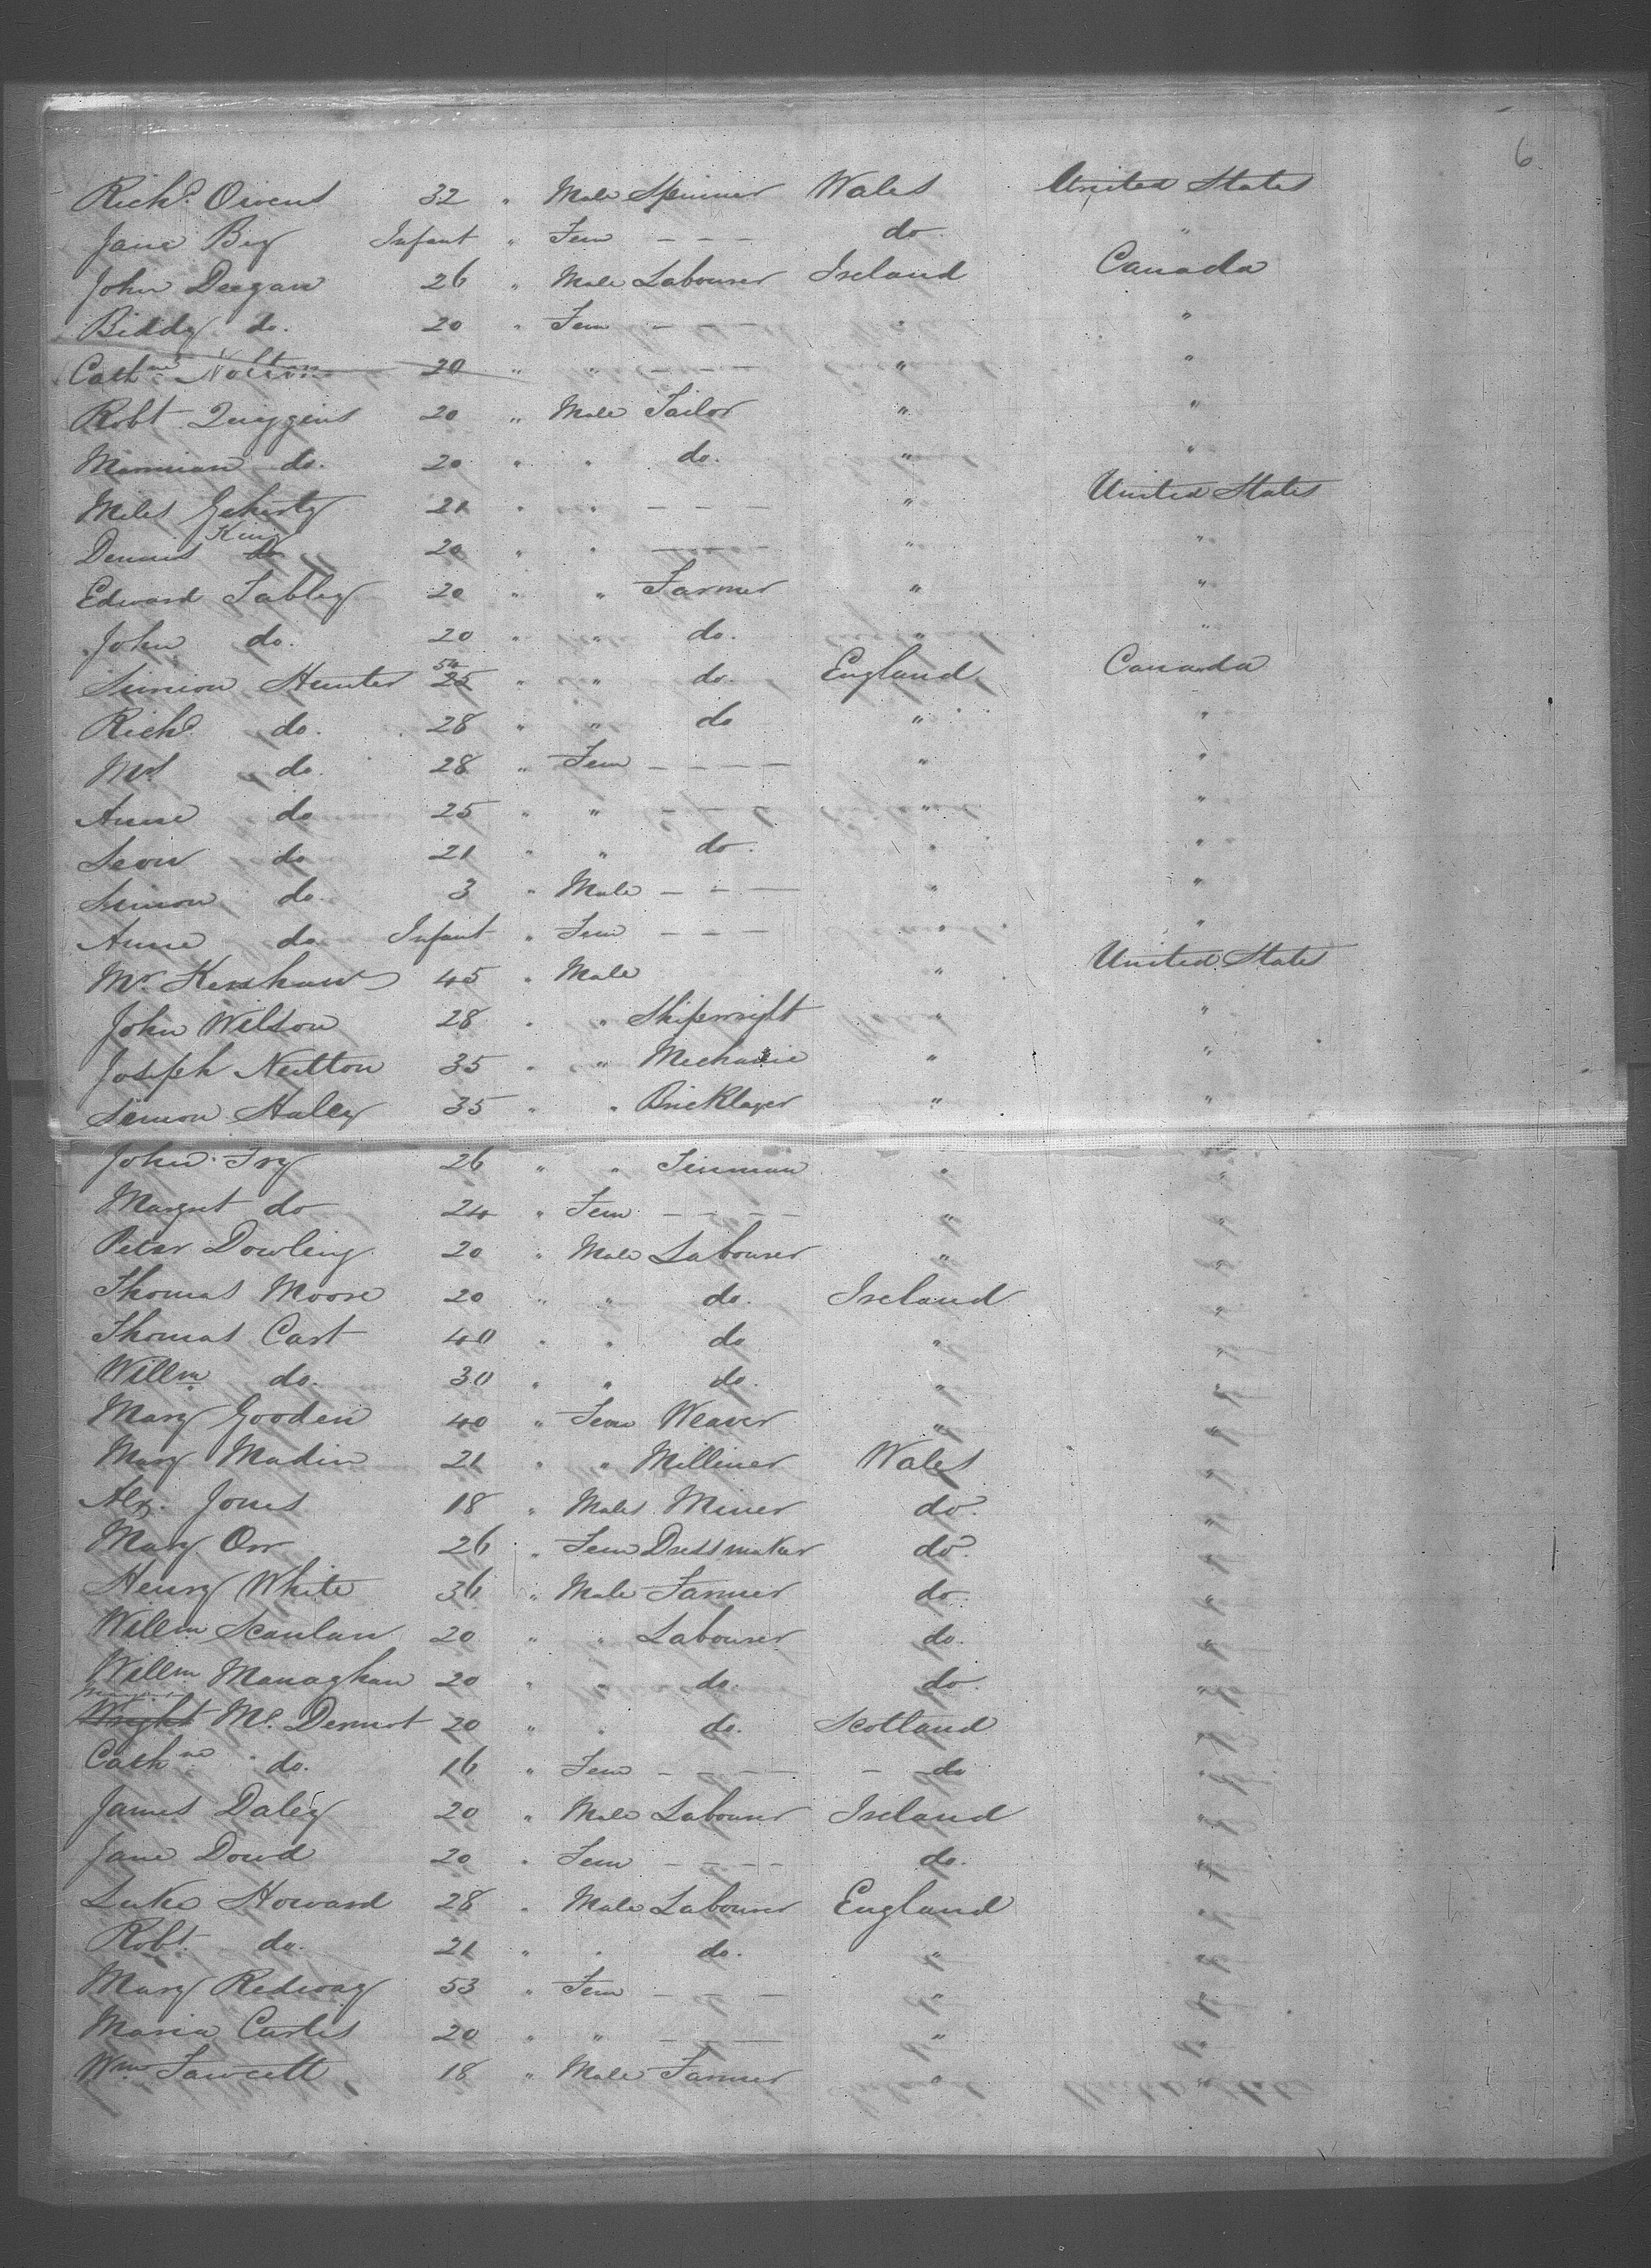 6
Richd. Owens 32 " Male Spinner Wales United States
Jane Bey Infant " Fem - - - do. "
John Deegan 26 " Male Labourer Ireland Canada
Biddy do. 20 " Fem - - - " "
Cathne Nolton 20 " " - - - " "
Robt Quiggins 20 " Male Tailor " "
do. 20 " " do. " "
Miles Geherty 21 " " - - - " United States
Dennis King do 20 " " - - - " "
Edward Tabley 20 " " Farmer " "
John do. 20 " " do. " "
Simion Hunter 54 25 " " do. England Canada
Richd. do. 28 " " do " "
Mrs do. 28 " Fem - - - - " "
Anne do 25 " " - - - " "
do 21 " " do. " "
Simion do. 3 " Male - - - " "
Anne do Infant " Fem - - - " "
Mr. Kershaw 45 " Male " United States
John Wilson 28 " " Shipwright " "
Joseph Nutton 35 " " Mechanic " "
Simon Haley 35 " " Bricklayer " "
John Fry 26 " " Tinman " "
Margret do 24 " Fem - - - - " "
Peter Dowling 20 " Male Labourer " "
Thomas Moore 20 " " do. Ireland "
Thomas Cast 40 " " do " "
Willm do. 30 " " do. " "
Mary Gooden 40 " Fem Weaver " "
Mary Madin 21 " " Milliner Wales "
Alx. Jones 18 " Male Miner do. "
Mary Orr 26 " Fem Dressmaker do. "
Henry White 36 " Male Farmer do. "
Willm Scanlan 20 " " Labourer do. "
Willm Managhan 20 " " do. do. "
Wright Mc. Dermot 20 " " do. Scotland "
Cathne do. 16 " Fem - - - - - do "
James Daley 20 " Male Labourer Ireland "
Jane Dowd 20 " Fem - - - - do. "
Luke Howard 28 " Male Labourer England "
Robt. do. 21 " " do. " "
Mary Redway 53 " Fem - - - " "
Maria Curtis 20 " " - - - " "
Wm Fawcett 18 " Male Farmer " "